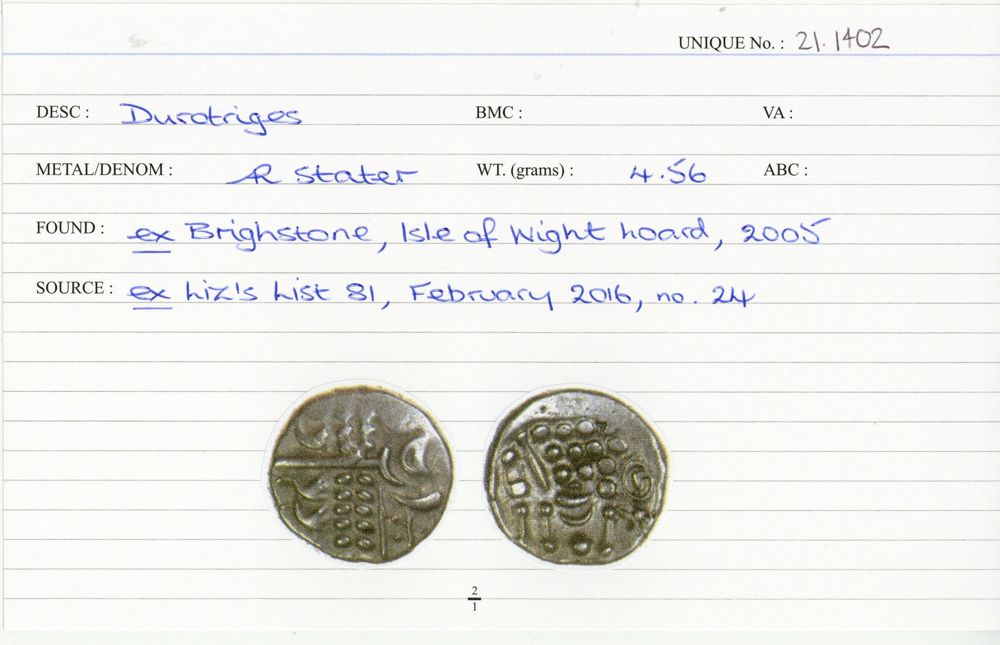 UNIQUE No. : 21.1402
DESC : Durotriges BMC : VA :
METAL/DENOM : AR Stater WT. (grams) : 4.56 ABC :
FOUND : ex Brighstone, Isle of Wight hoard, 2005
SOURCE : ex Liz's List 81, February 2016, no. 24
2
1